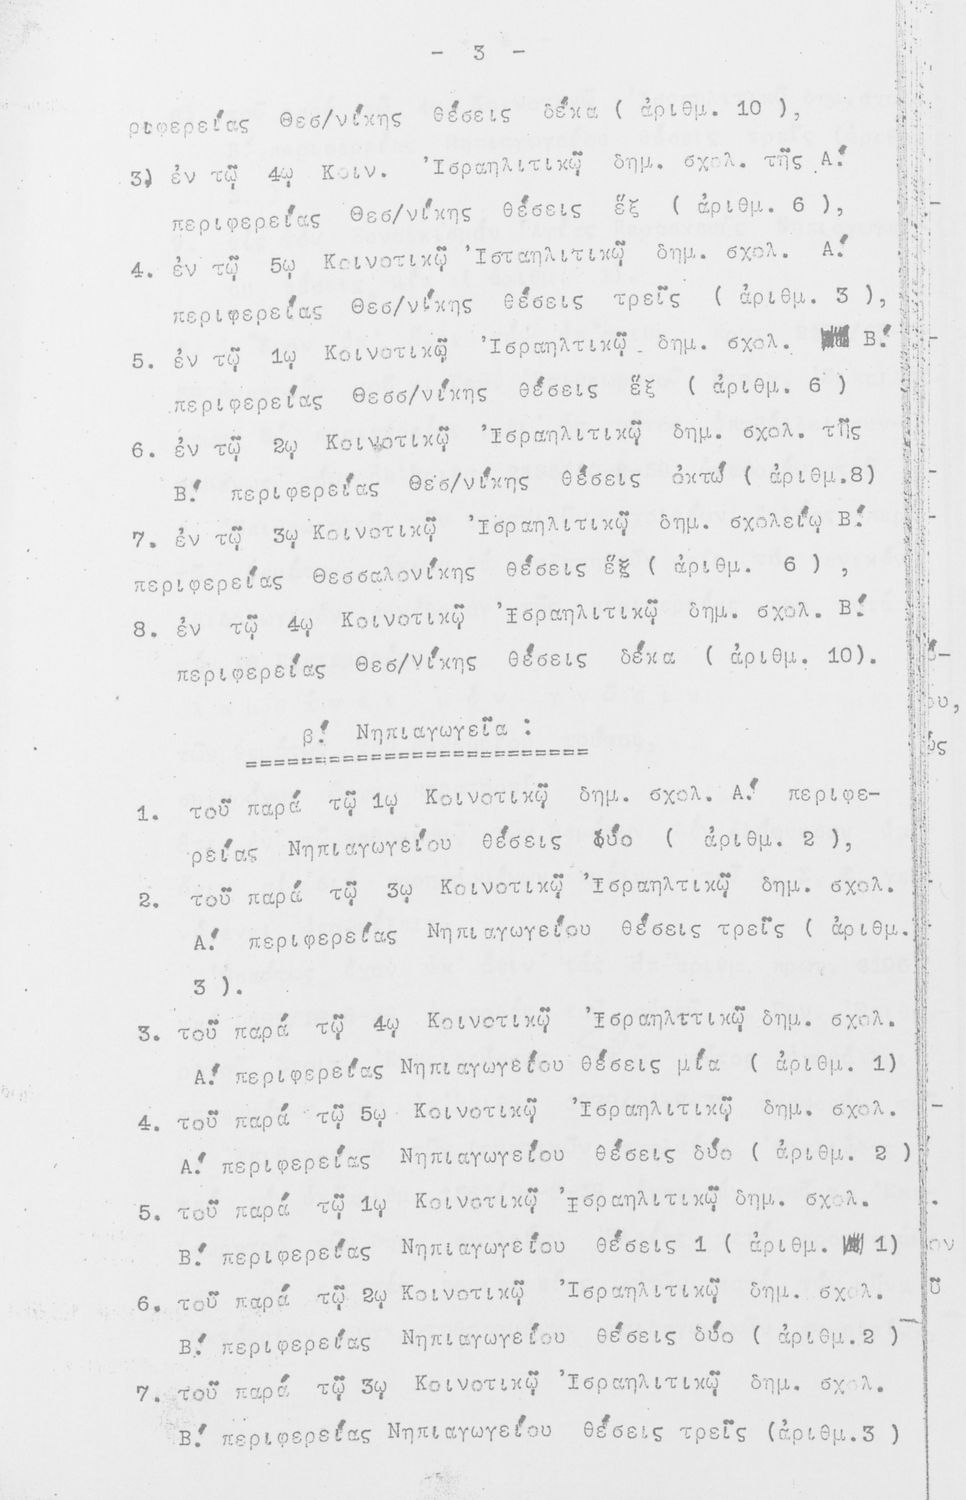 - 3 -
ριφερείας Θεσ/νίκης θέσεις δέκα ( ἀριθμ. 10 ),
3) ἐν τῷ 4ῳ Κοιν. Ἰσραηλιτικῷ δημ. σχολ. τῆς Α!
περιφερείας Θεσ/νίκης θέσεις ἕξ ( ἀριθμ. 6 ),
4. ἐν τῷ 5ῳ Κοινοτικῷ Ἰσταηλιτικῷ δημ. σχολ. Α!
περιφερείας Θεσ/νίκης θέσεις τρεῖς ( ἀριθμ. 3 ),
5. ἐν τῷ 1ῳ Κοινοτικῷ Ἰσραηλτικῷ δημ. σχολ. Β!
περιφερείας Θεσσ/νίκης θέσεις ἕξ ( ἀριθμ. 6 )
6. ἐν τῷ 2ῳ Κοινοτικῷ Ἰσραηλιτικῷ δημ. σχολ. τῆς
Β! περιφερείας Θεσ/νίκης θέσεις ὀκτώ ( ἀριθμ.8)
7. ἐν τῷ 3ῳ Κοινοτικῷ Ἰσραηλιτικῷ δημ. σχολείῳ Β!
περιφερείας Θεσσαλονίκης θέσεις ἕξ ( ἀριθμ. 6 ) ,
8. ἐν τῷ 4ῳ Κοινοτικῷ Ἰσραηλιτικῷ δημ. σχολ. Β!
περιφερείας Θεσ/νίκης θέσεις δέκα ( ἀριθμ. 10).
β! Νηπιαγωγεῖα :
=========================
1. τοῦ παρά τῷ 1ῳ Κοινοτικῷ δημ. σχολ. Α! περιφε-
ρείας Νηπιαγωγείου θέσεις δύο ( ἀριθμ. 2 ),
2. τοῦ παρά τῷ 3ῳ Κοινοτικῷ Ἰσραηλτικῷ δημ. σχολ.
Α! περιφερείας Νηπιαγωγείου θέσεις τρεῖς ( ἀριθμ.
3 ).
3. τοῦ παρά τῷ 4ῳ Κοινοτικῷ Ἰσραηλττικῷ δημ. σχολ.
Α! περιφερείας Νηπιαγωγείου θέσεις μία ( ἀριθμ. 1)
4. τοῦ παρά τῷ 5ῳ Κοινοτικῷ Ἰσραηλιτικῷ δημ. σχολ.
Α! περιφερείας Νηπιαγωγείου θέσεις δύο ( ἀριθμ. 2 )
5. τοῦ παρά τῷ 1ῳ Κοινοτικῷ Ἰσραηλιτικῷ δημ. σχολ.
Β! περιφερείας Νηπιαγωγείου θέσεις 1 ( ἀριθμ. 1)
6. τοῦ παρά τῷ 2ῳ Κοινοτικῷ Ἰσραηλιτικῷ δημ. σχολ.
Β! περιφερείας Νηπιαγωγείου θέσεις δύο ( ἀριθμ.2 )
7. τοῦ παρά τῷ 3ῳ Κοινοτικῷ Ἰσραηλιτικῷ δημ. σχολ.
Β! περιφερείας Νηπιαγωγείου θέσεις τρεῖς (ἀριθμ.3 )